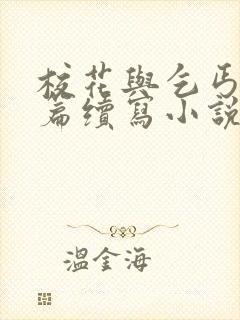 校花與乞丐
篇續寫小說
溫金海